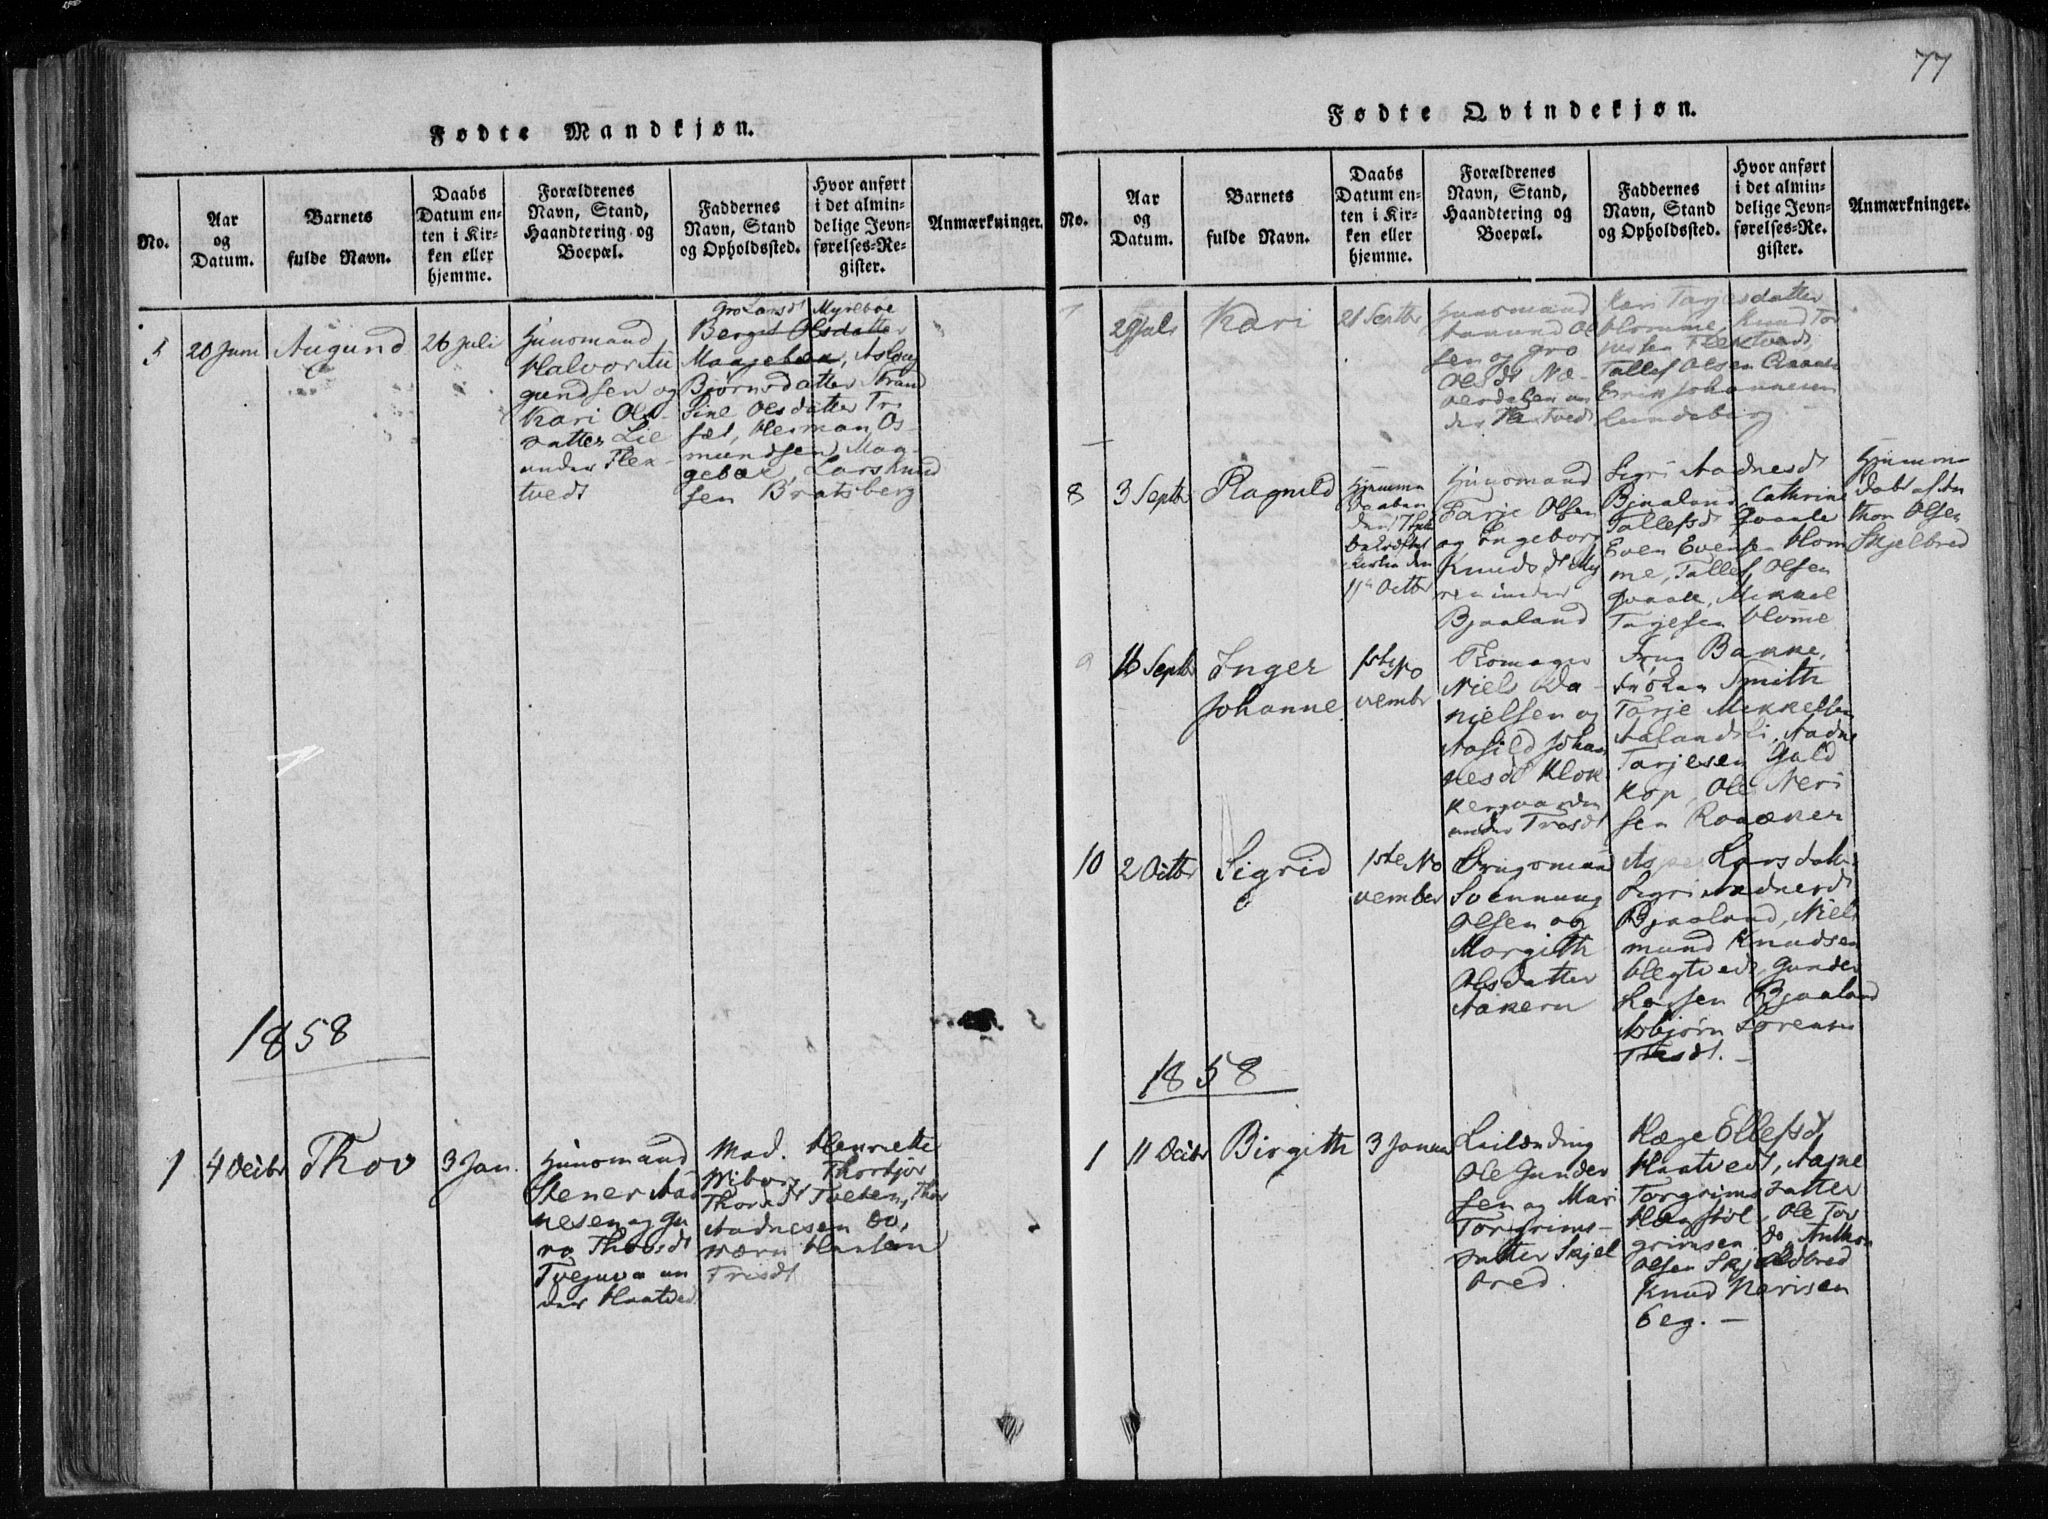 77
Fødte Mandkjøn.
No.
Aar
og
Datum.
Barnets
fulde Navn.
Daabs
Datum en-
ten i Kir-
ken eller
hjemme.
Forældrenes
Navn, Stand,
Haandtering og
Boepæl.
Faddernes
Navn, Stand
og Opholdssted.
Hvor anført
i det almin-
delige Jevn-
førelses-Re-
gister.
Anmærkninger.
5
20 Juni
Augund
26 Juli
Huusmand
Halvor Au
gundsen og
Kari Ols
datter Lie
under Flek-
tvedt
Gro Larsdt Myreboe
Bergit Olsdatter
Maagebæk, Aslaug
Bjørnsdatter Strand
Sine Olsdatter Tri
sæt, Herman Os-
mundsen Maa-
gebæk, Lars Knud
sen Bratsberg
1858
1
4 Decbr
Thov
3 Jan.
Huusmand
Stener Aad
nesen og Gu
ro Thovsdt
Tvejuva un
der Haatved
Mad. Henriette
Wiborg Thorbjør
Thovsdt Tveten, Thov
Aadnesen do,
Hansen
Trisdt
Fødte Qvindekjøn.
No.
Aar
og
Datum.
Barnets
fulde Navn.
Daabs
Datum en-
ten i Kir-
ken eller
hjemme.
Forældrenes
Navn, Stand,
Haandtering og
Boepæl.
Faddernes
Navn, Stand
og Opholdssted.
Hvor anført
i det almin-
delige Jevn-
førelses-Re-
gister.
Anmærkninger.
7
29 Juli
Kari
21 Septbr
Huusmand
Aanund Ol
sen og Gro
Olsdt Næ-
verdalen un
der Flektvedt
Kari Tarjesdatter
Homme, Knud Tor
jusen Flektvedt
Tallef Olsen Qvaale
Erik Johannesen
Lundeberg
8
3 Septbr
Ragnild
Hjemme
Daaben
den 7 Sept
Kirken den
11te Octbr
Huusmand
Tarje Olsen
og Ingeborg
Knudsdt My
ra under
Bjaaland
Sigri Aadnesdt
Bjaaland, Cathrine
Tallefsdt Qvaale
Even Evensen Hom
me, Tallef Olsen
Qvaale, Mikkel
Tarjesen Homme
Hjemme
døbt af An
thon Olsen
Skjelbred
9
16 Septbr
Inger
Johanne
1ste No
vembr
Skomager
Niels Da-
nielsen og
Aasild Johan
nesdt Klok
kergaarden
under Trisdt
Frue Bakke,
Frøken Smith
Tarje Mikkelsen
Aalandsli, Aadne
Tarjesen Guld
kop, Ole Neri
sen Roaaker
10
2 Octbr
Sigrid
1ste No
vember
Brugsmand
Svennung
Olsen og
Margith
Olsdatter
Aakern
Larsdatter
Sigri Aadnesdt
Bjaaland, Niels
mund Knudsen
Hegtvedt, Gunder
Larsen Bjaaland
Asbjørn Sørensen
Trisdt.
1858
1
11 Decbr
Birgith
3 Januar
Leilænding
Ole Gunder
sen og Mari
Torgrims-
datter Skjel
bred.
Hæge Ellefsdt
Haatvedt, Aagne
Torgrimsdatter
Haugstøl, Ole Tor
grimsen do, Anthon
Olsen Skjelbred
Knud Nerisen
Eeg.